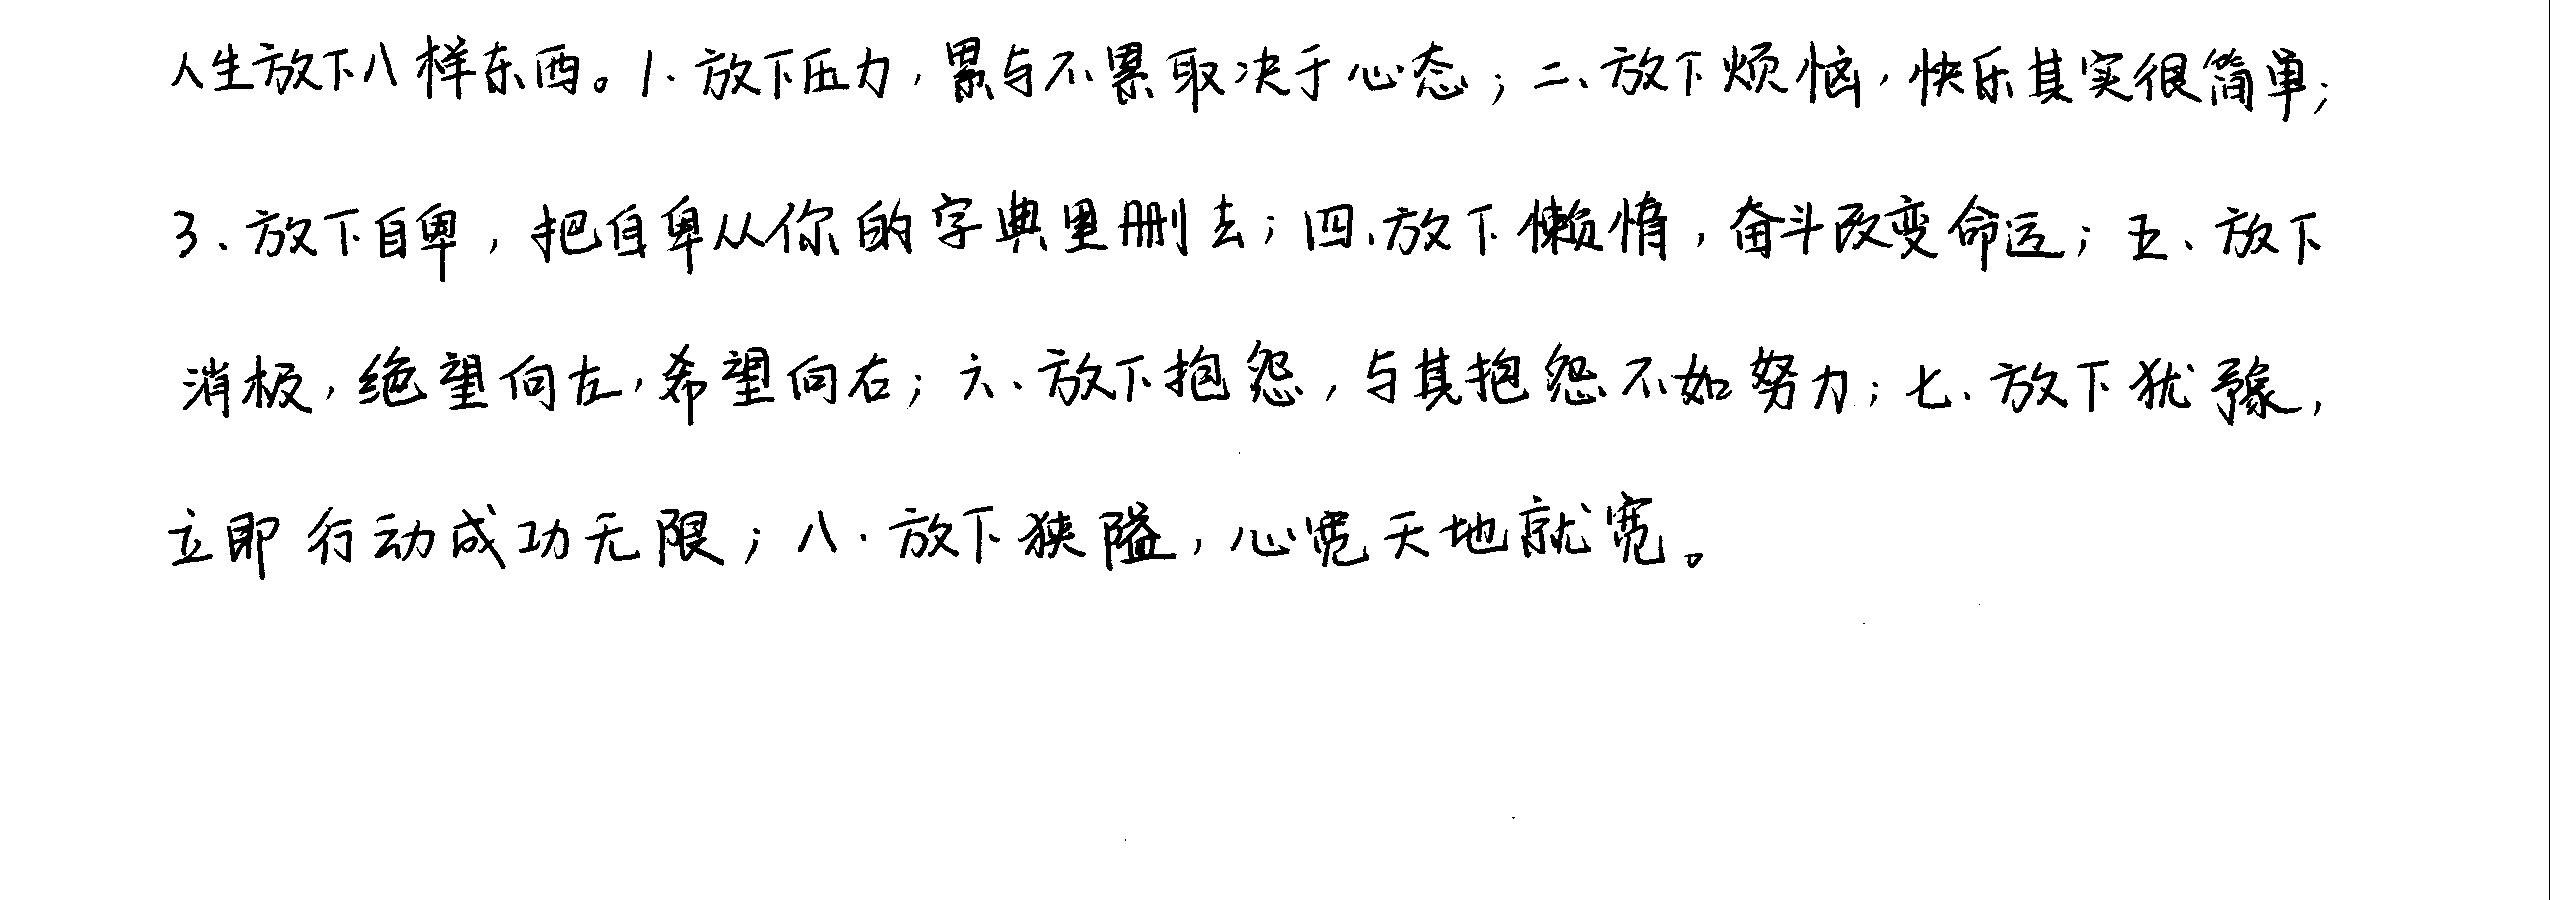 人生放下八样东西。1.放下压力，累与不累取决于心态；二、放下烦恼，快乐其实很简单；
3、放下自卑，把自卑从你的字典里删去；四、放下懒惰，奋斗改变命运；五、放下
消极，绝望向左，希望向右；六、放下抱怨，与其抱怨不如努力；七、放下犹豫，
立即行动成功无限；八.放下狭隘，心宽天地就宽。